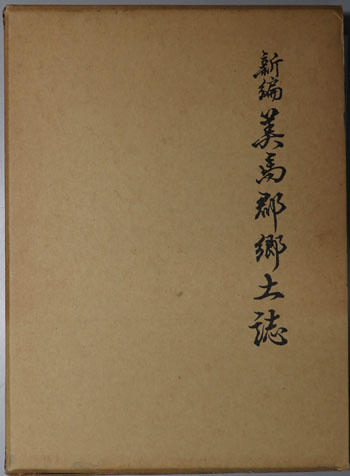 新編 美馬郡郷土誌